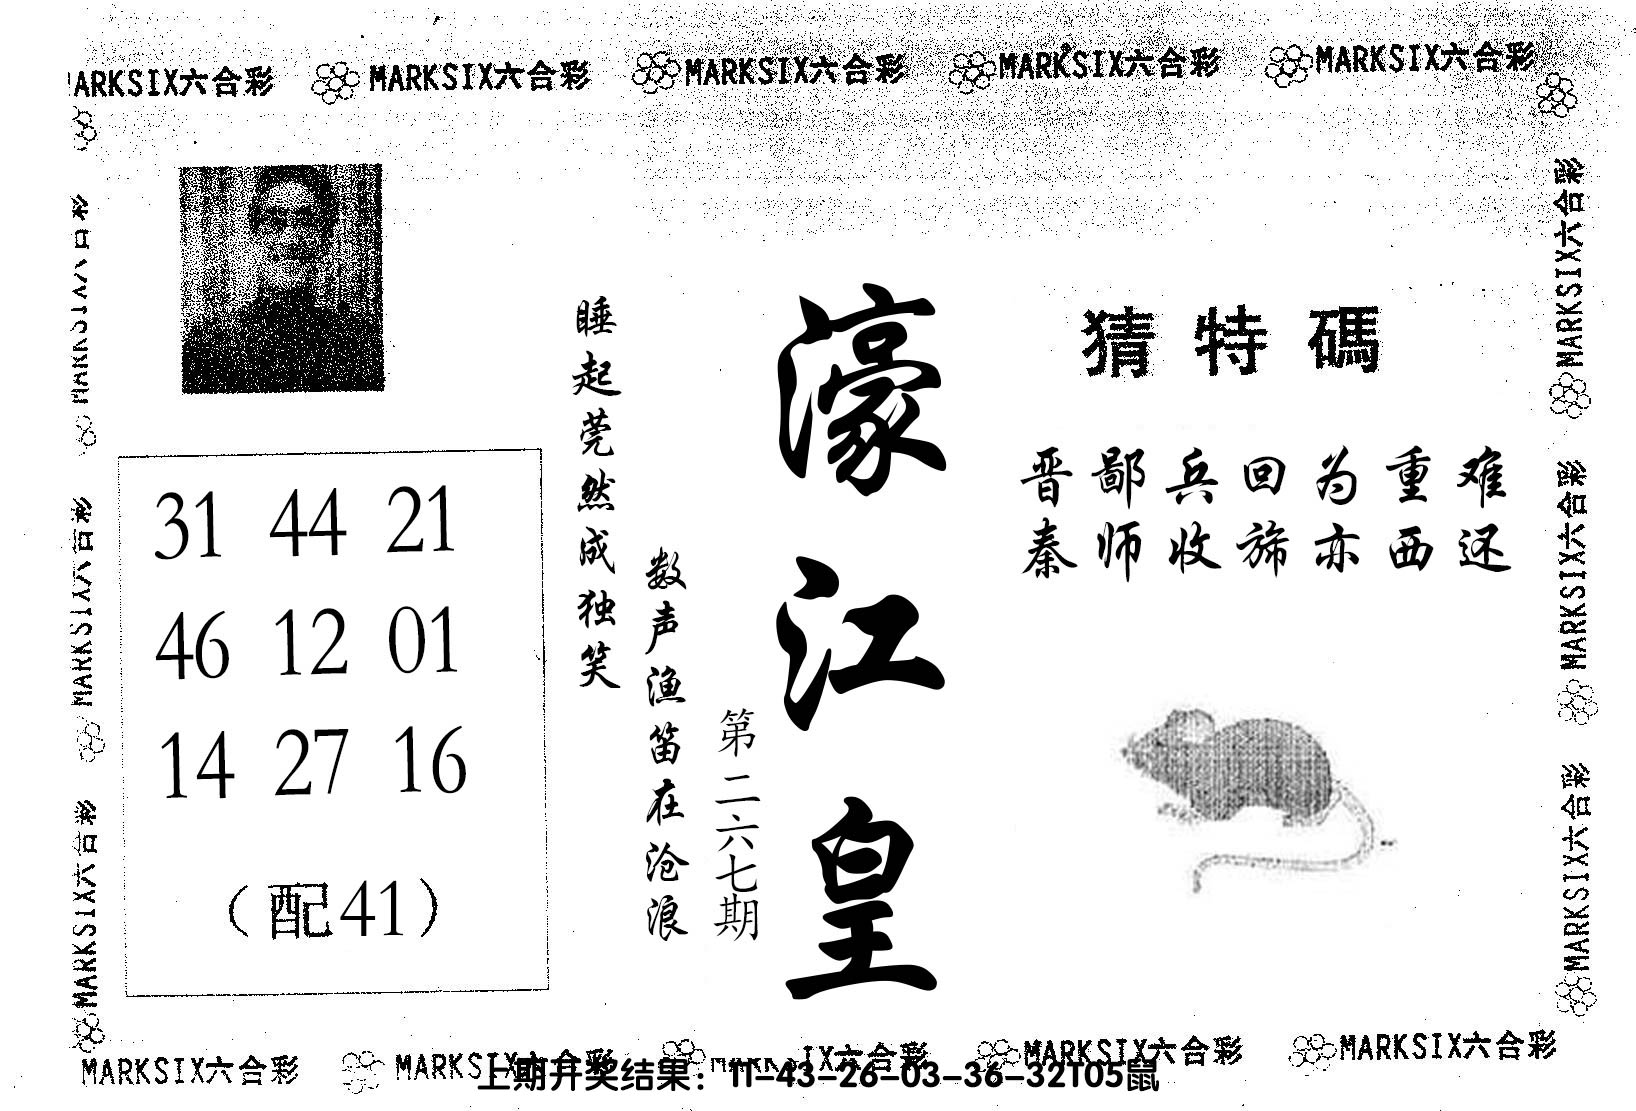 MARKSIX六合彩 MARKSIX六合彩 MARKSIX六合彩 MARKSIX六合彩 MARKSIX六合彩
猜特碼
晋鄙兵回为重难
秦师收旆亦西还
濠江皇
第二六七期
睡起莞然成独笑
数声渔笛在沧浪
31 44 21
46 12 01
14 27 16
(配41)
MARKSIX六合彩
MARKSIX六合彩
MARKSIX六合彩
MARKSIX六合彩
MARKSIX六合彩
MARKSIX六合彩
MARKSIX六合彩 MARKSIX六合彩 IX六合彩 MARKSIX六合彩 MARKSIX六合彩
上期开奖结果：11-43-26-03-36-32T05鼠